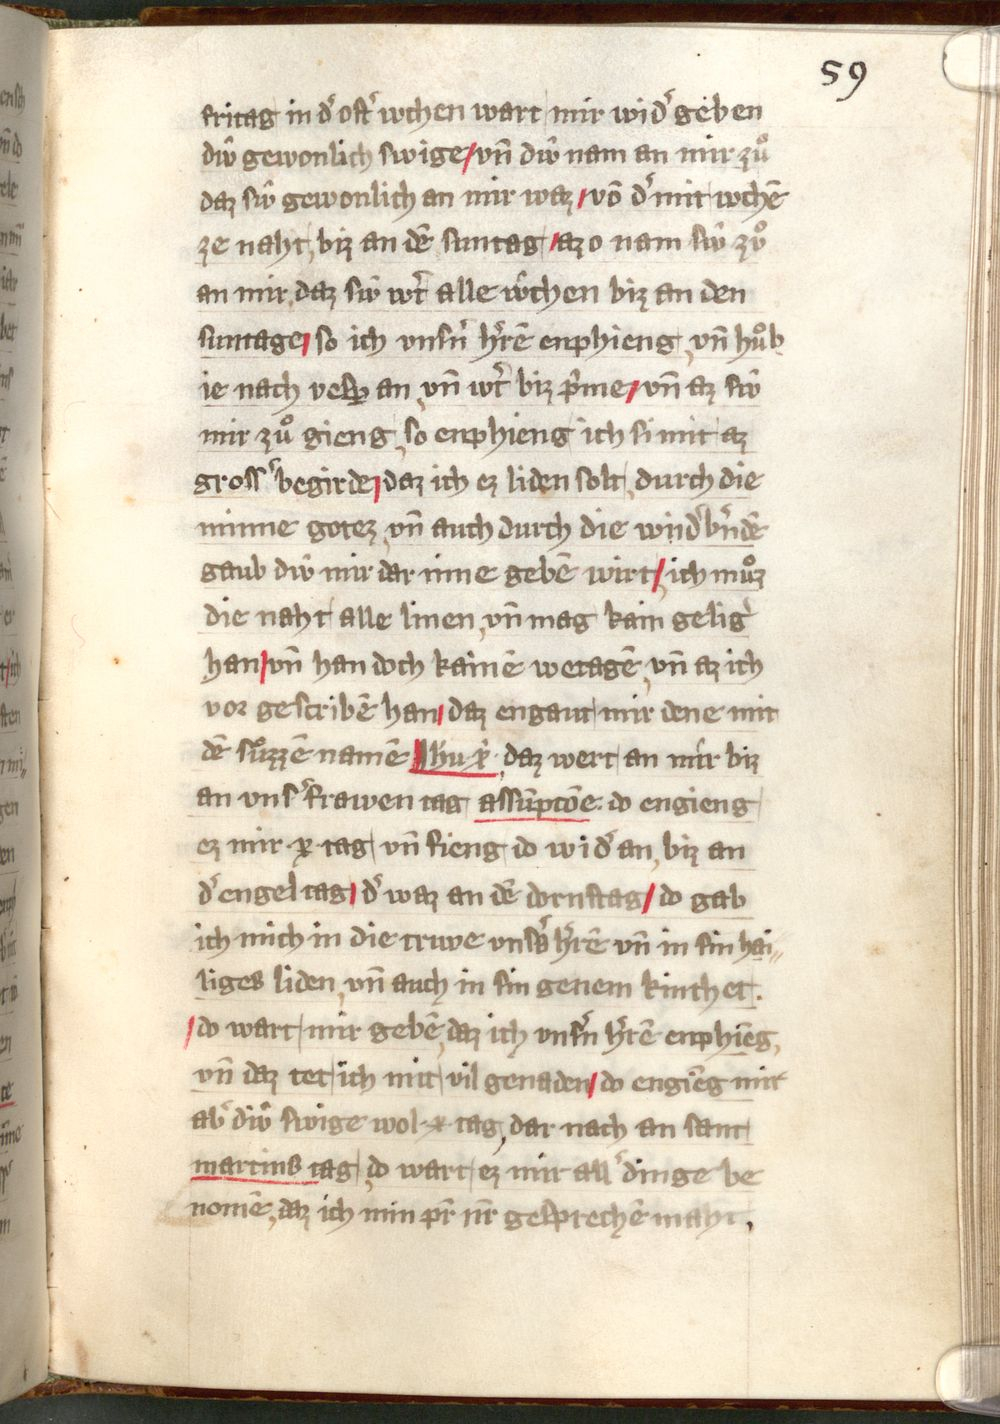 59
fritag in d̾ ost̾ wchen wart mir wid̾ geben
diw̑ gewonlich swige / vn̄ diw̑ nam an mir zuͦ
daz siw̑ gewonlich an mir waz / vō d̾ mit wchē
ze naht, biz an dē suntag / azo nam siw̑ zvͦ
an mir, daz siw̑ wt̾ alle wͦchen biz an den
suntage / so ich vnsn̾ h̾rē enphieng, vn̄ huͦb
ie nach vesp an, vn̄ wt̾ biz p̾me / vn̄ az siw̑
mir zuͦ gieng, so enphieng ich si mit az
gross̾ begirde / daz ich ez liden solt, durch die
minne gotez, vn̄ auch durch die wnd̾bn̾dē
gaub diw̑ mir dar inne gebē wirt / ich muͦz
die naht alle linen, vn̄ mag kain gelig̾
han / vn̄ han doch kainē wetagē, vn̄ az ich
vor gescribē han / daz engaut mir dene mit
dē suͦzzē namē Ihu xp̾i, daz wert an mir biz
an vns̾ frawen tag assūptōe. do engieng
ez mir x tag, vn̄ fieng do wid̾ an, biz an
d̾ engel tag / d̾ waz an dē dornstag / do gab
ich mich in die truwe vns̾s h̾rē vn̄ in sin hai
liges liden, vn̄ auch in sin genem kinthet.
/ do wart mir gebē, daz ich vnsn̾ h̾rē enphieng,
vn̄ daz tet ich mit vil genaden / do engieg mir
ab̾ diw̑ swige wol x tag, dar nach an sant
martins tag, do wart ez mir all̾ dinge be
nomē, daz ich min pr̄ nr̄ gesprechē maht,